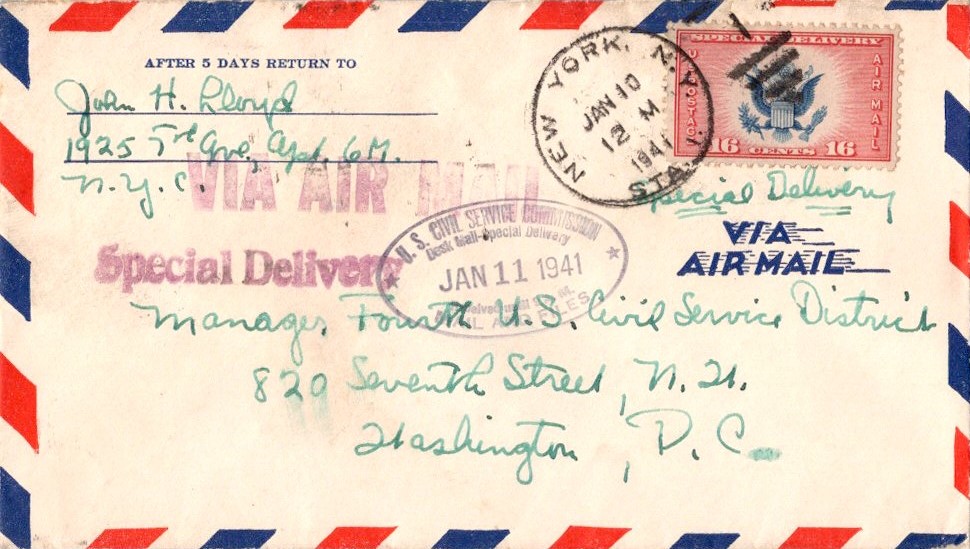 AFTER 5 DAYS RETURN TO
John H. Lloyd
1925 7th Ave, Apt. 6M.
N.Y.C.
VIA AIR MAIL
Special Delivery
NEW YORK, N.Y.
JAN 10
12 M
1941
STA.
SPECIAL DELIVERY
U.S. POSTAGE
AIR MAIL
16 CENTS 16
Special Delivery
VIA
AIR MAIL
U. S. CIVIL SERVICE COMMISSION
Desk Mail-Special Delivery
JAN 11 1941
MAIL AND FILES
Manager, Fourth U.S. Civil Service District
820 Seventh Street, N.W.
Washington, D.C.